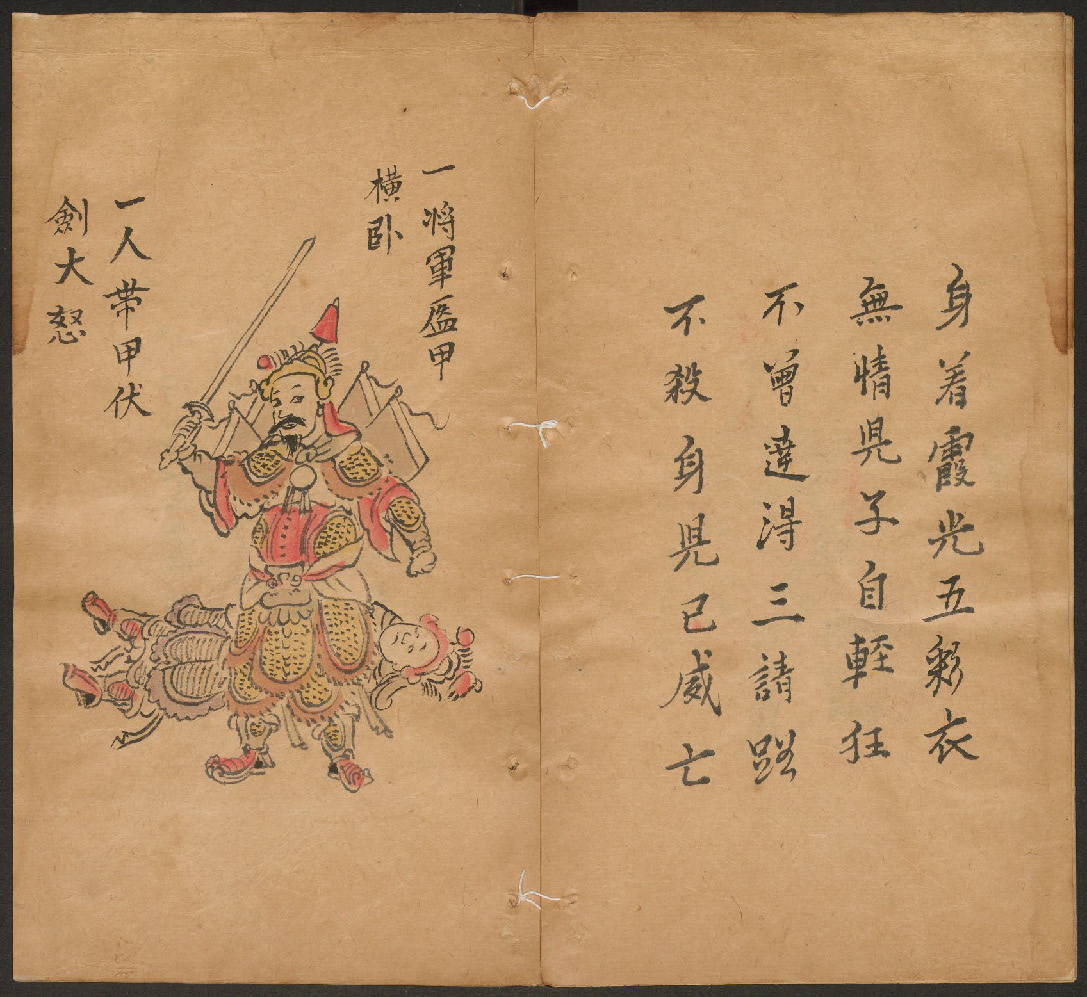 身着霞光五彩衣
無情見子自輕狂
不曾達得三請路
不殺身見已威亡
一將軍盔甲
橫卧
一人帯甲伏
劍大怒